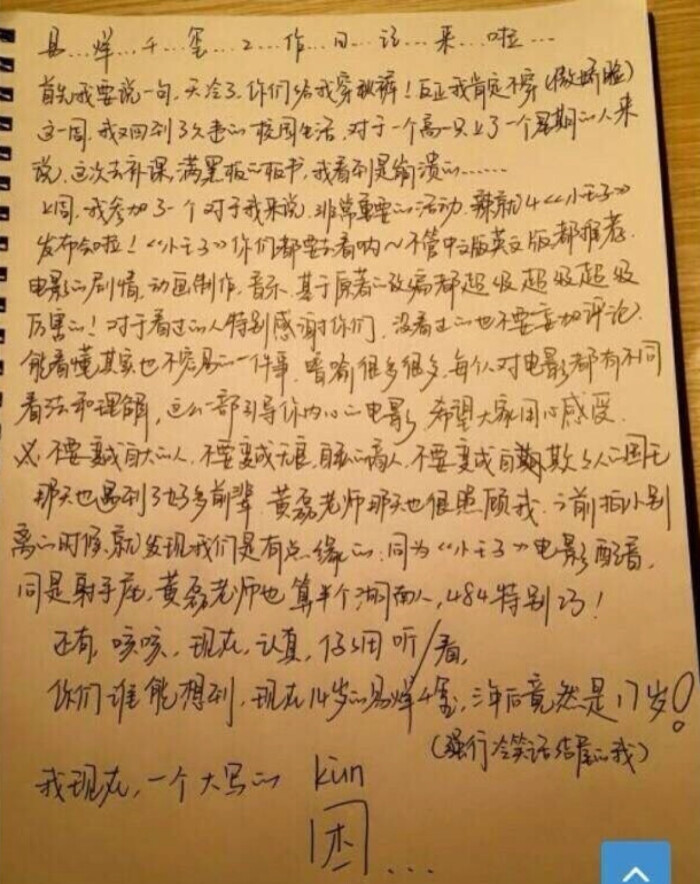 易…烊…千…玺…工…作…日…记…来…啦…
首先我要说一句，天冷了，你们给我穿秋裤！反正我肯定不穿（傲娇脸）
这一周，我又回到了久违的校园生活，对于一个高一只上了一个星期的人来
说，这次去补课，满黑板的板书，我看到是崩溃的……
上周，我参加了一个对于我来说，非常重要的活动，就是《小王子》
发布会啦！《小王子》你们都要去看哟～不管中文版英文版都推荐.
电影的剧情，动画制作，音乐，基于原著的改编都超级超级超级
厉害的！对于看过的人特别感谢你们，没看过的也不要妄加评论.
能看懂其实也不容易的一件事，暗喻很多很多，每个人对电影都有不同
看法和理解，这是一部引导你内心的电影，希望大家用心感受.
不要变成自大的人，不要变成无良，自私的商人，不要变成自欺欺人的国王
那天也遇到了好多前辈，黄磊老师那天也很照顾我，之前拍小别
离的时候，就发现我们是有点缘的，同为《小王子》电影配音，
同是射手座，黄磊老师也算半个湖南人，484特别巧！
还有，咳咳，现在，认真，仔细听/看，
你们谁能想到，现在14岁的易烊千玺，三年后竟然是17岁！
（强行冷笑话结尾的我）
我现在，一个大写的 kùn
困…